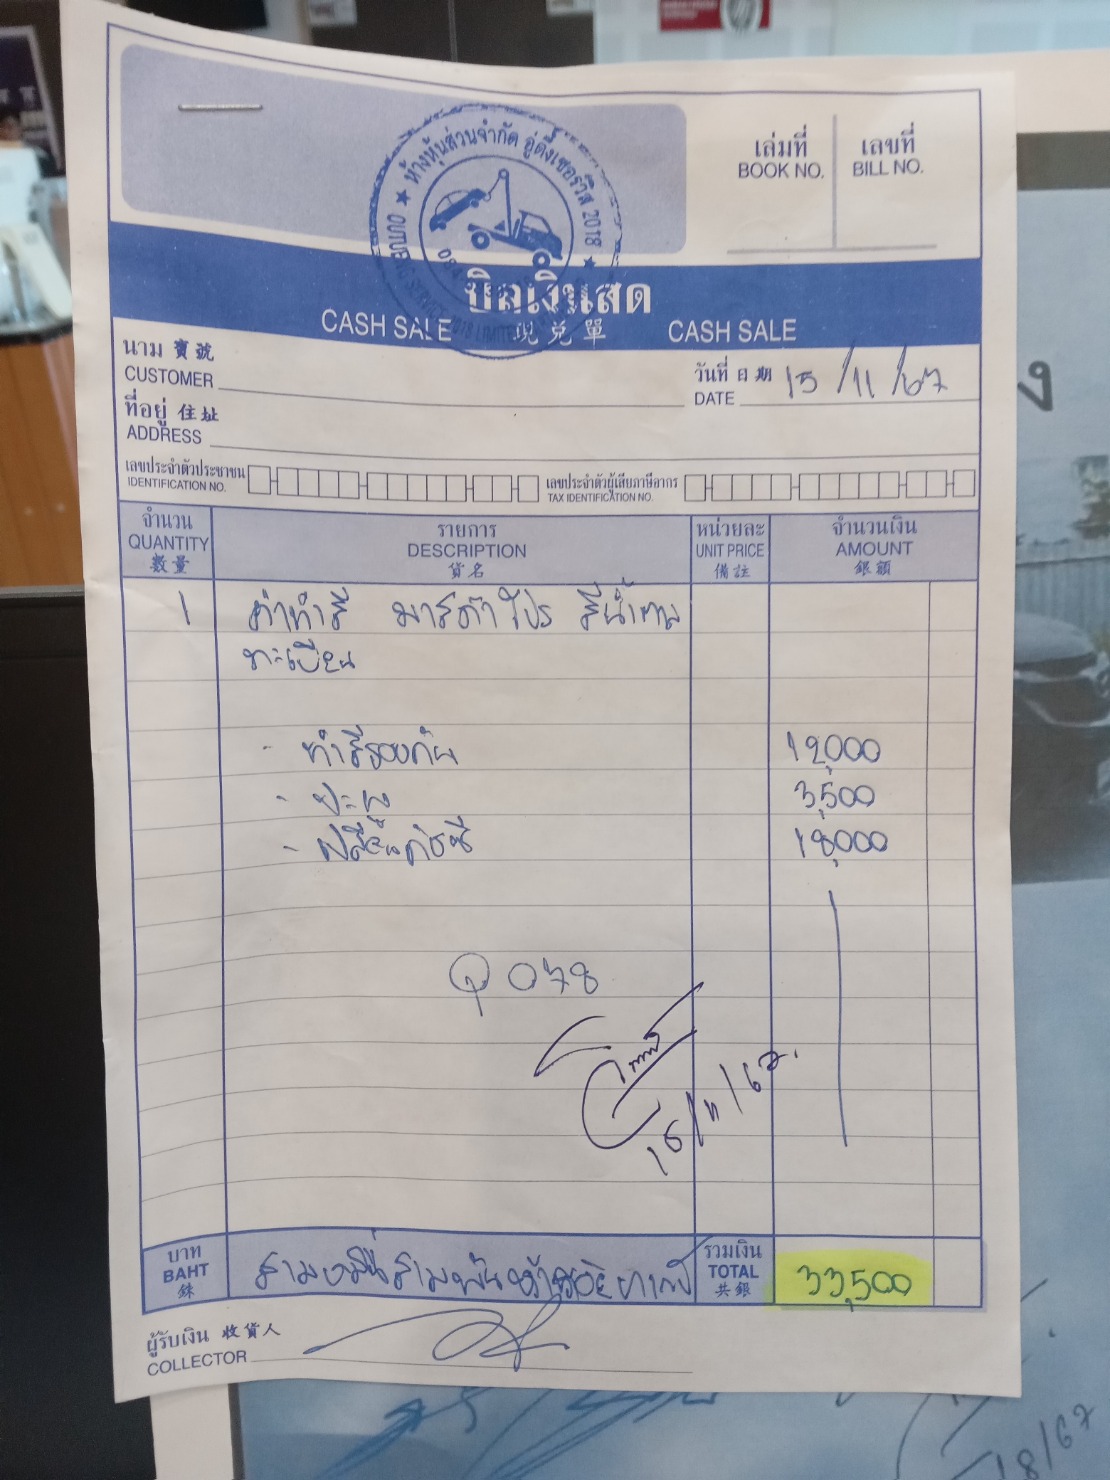 ห้างหุ้นส่วนจำกัด อู่ตึ๋งเซอร์วิส 2018
เล่มที่ เลขที่
BOOK NO. BILL NO.
บิลเงินสด
CASH SALE 現兌單 CASH SALE
นาม 寶號
CUSTOMER
วันที่ 日期 15/11/67
DATE
ที่อยู่ 住址
ADDRESS
เลขประจำตัวประชาชน เลขประจำตัวผู้เสียภาษีอากร
IDENTIFICATION NO. TAX IDENTIFICATION NO.
จำนวน รายการ หน่วยละ จำนวนเงิน
QUANTITY DESCRIPTION UNIT PRICE AMOUNT
數量 貨名 備註 銀額
1 ค่าทำสี มาสด้า โปร สีน้ำตาล
ทะเบียน
- ทำสีรอบคัน 12,000
- ปะผุ 3,500
- เปลี่ยนคัชซี 18,000
Q 078
15/11/67
บาท สามหมื่นสามพันห้าร้อยบาท รวมเงิน
BAHT TOTAL 33,500
銖 共銀
ผู้รับเงิน 收貨人
COLLECTOR